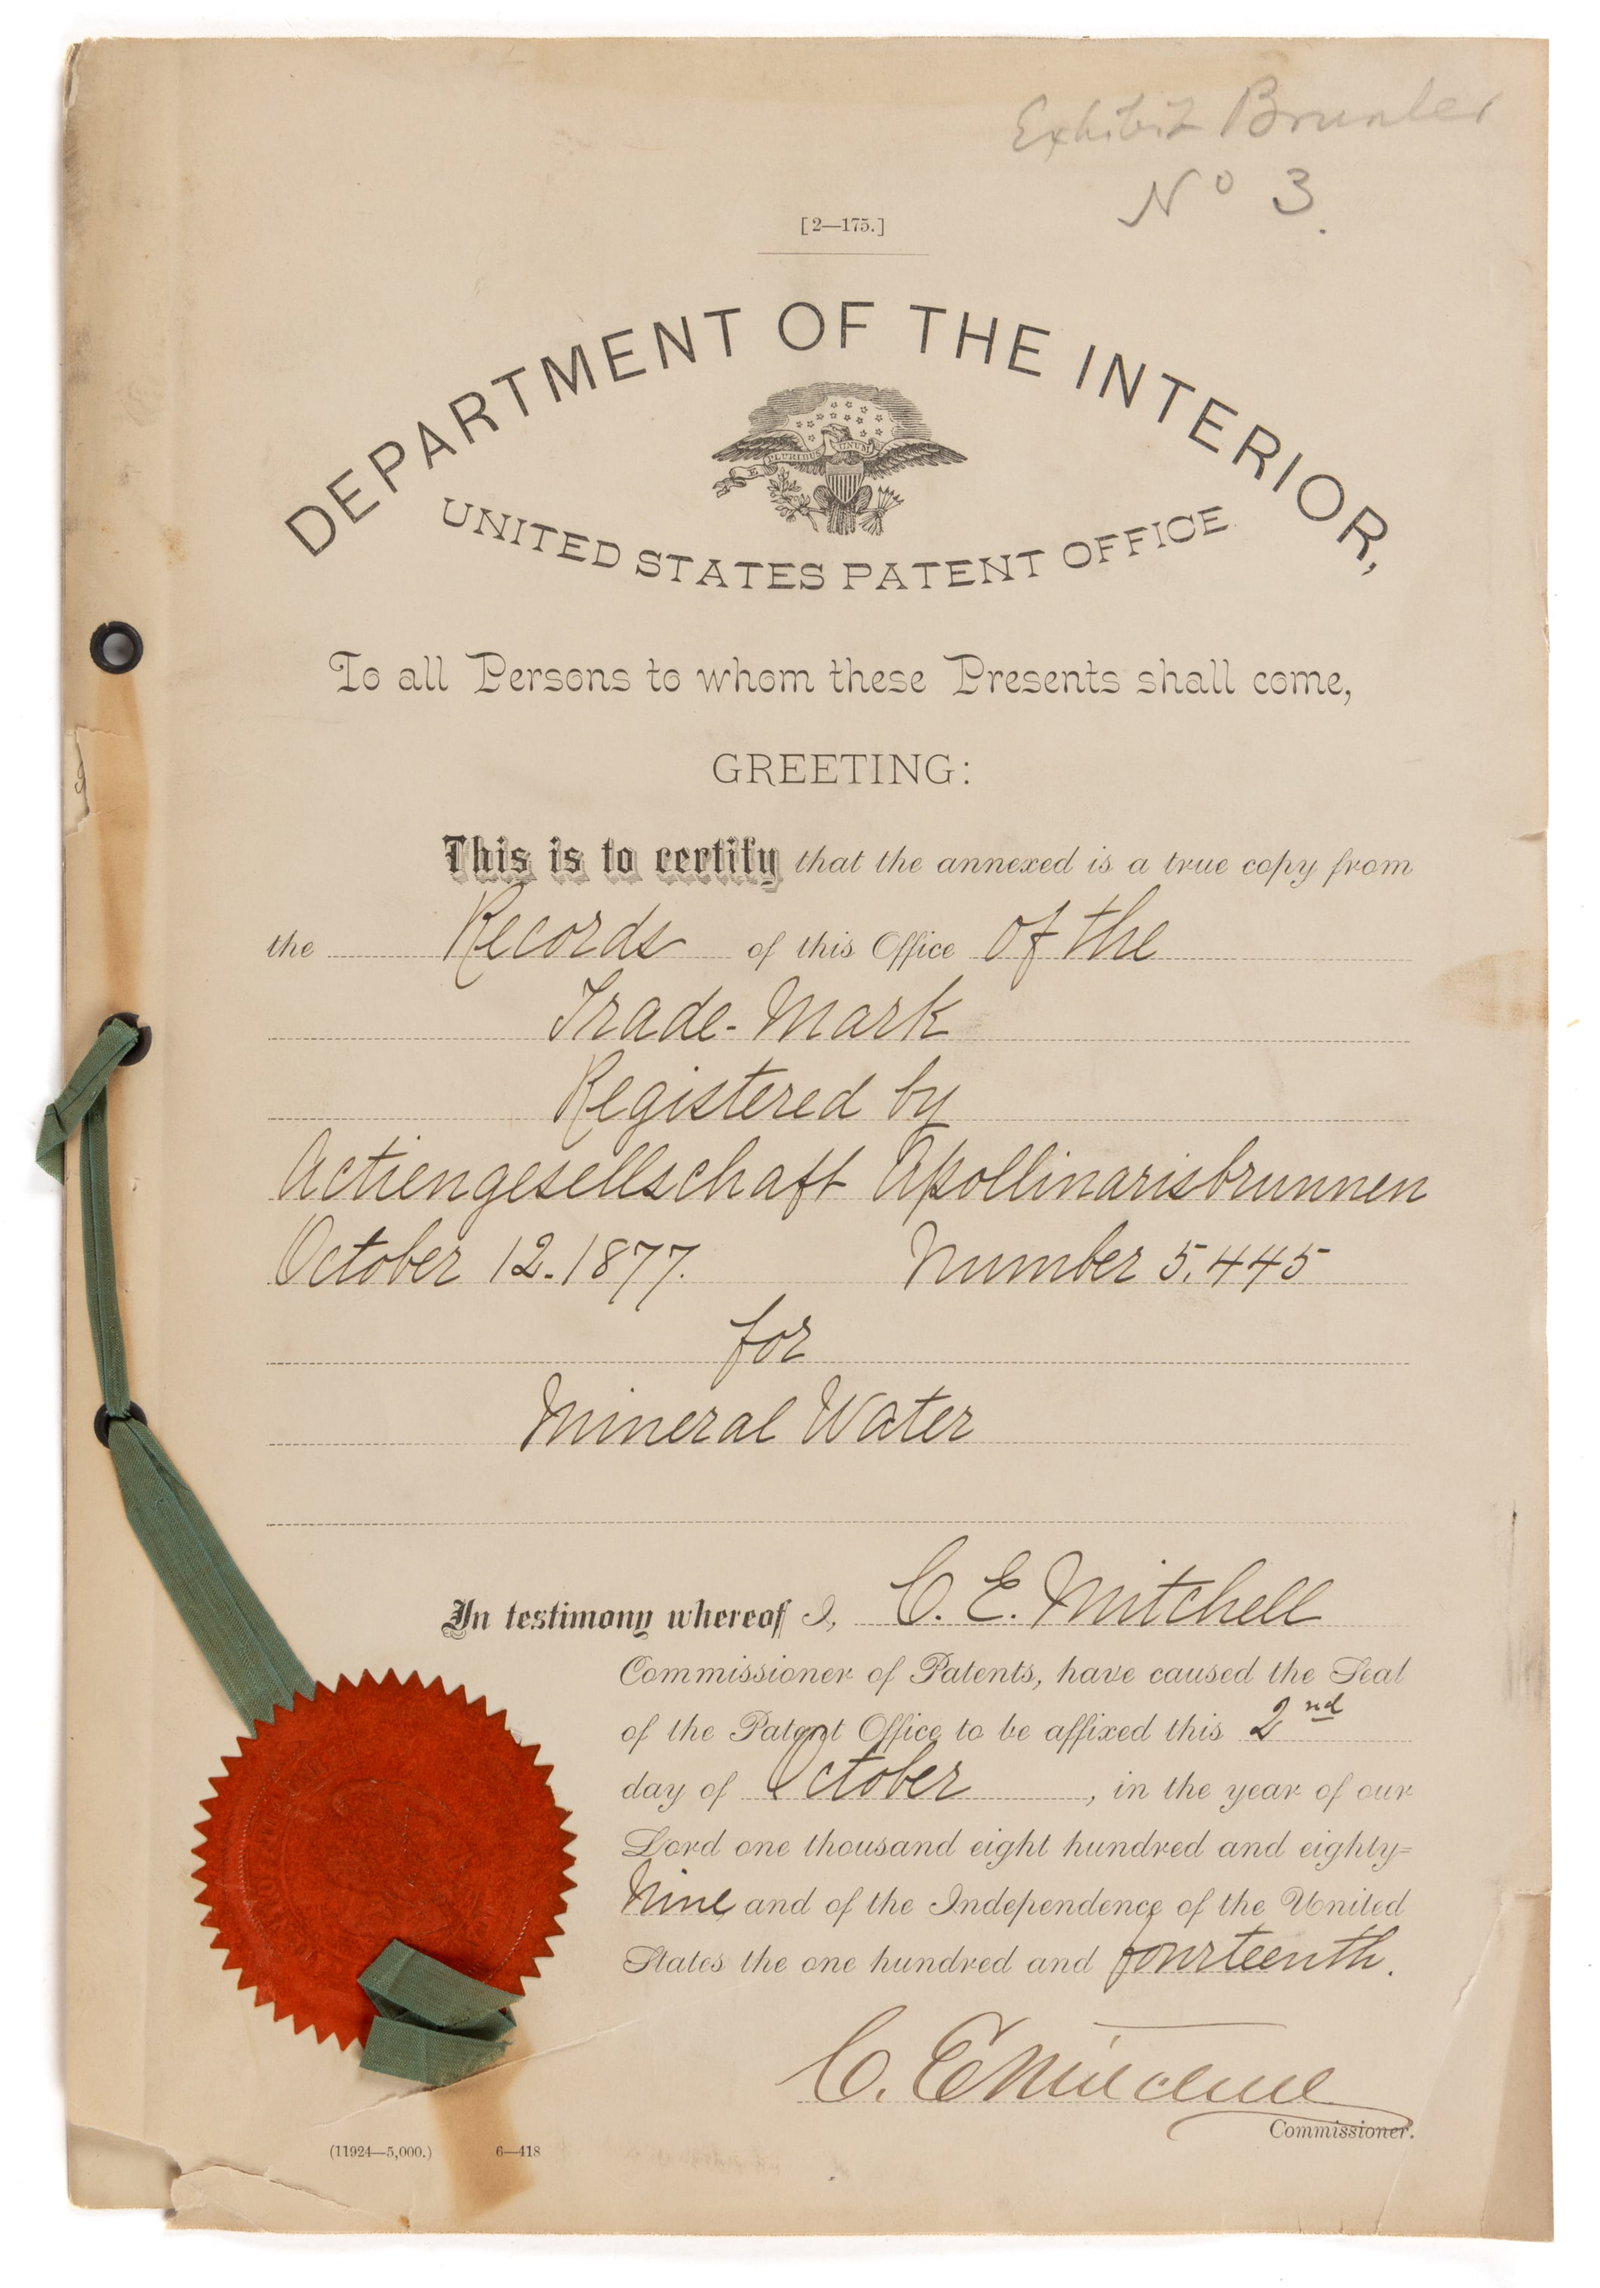 Exhibit Brunler
No 3.
[2—175.]
DEPARTMENT OF THE INTERIOR,
E PLURIBUS UNUM
UNITED STATES PATENT OFFICE.
To all Persons to whom these Presents shall come,
GREETING:
This is to certify that the annexed is a true copy from
the Records of this Office of the
Trade-Mark
Registered by
Actiengesellschaft Apollinarisbrunnen
October 12. 1877. Number 5.445
for
Mineral Water
In testimony whereof I, C. E. Mitchell
Commissioner of Patents, have caused the Seal
of the Patent Office to be affixed this 2nd
day of October, in the year of our
Lord one thousand eight hundred and eighty=
nine and of the Independence of the United
States the one hundred and fourteenth.
C. E. Mitchell
Commissioner.
(11924—5,000.) 6—418